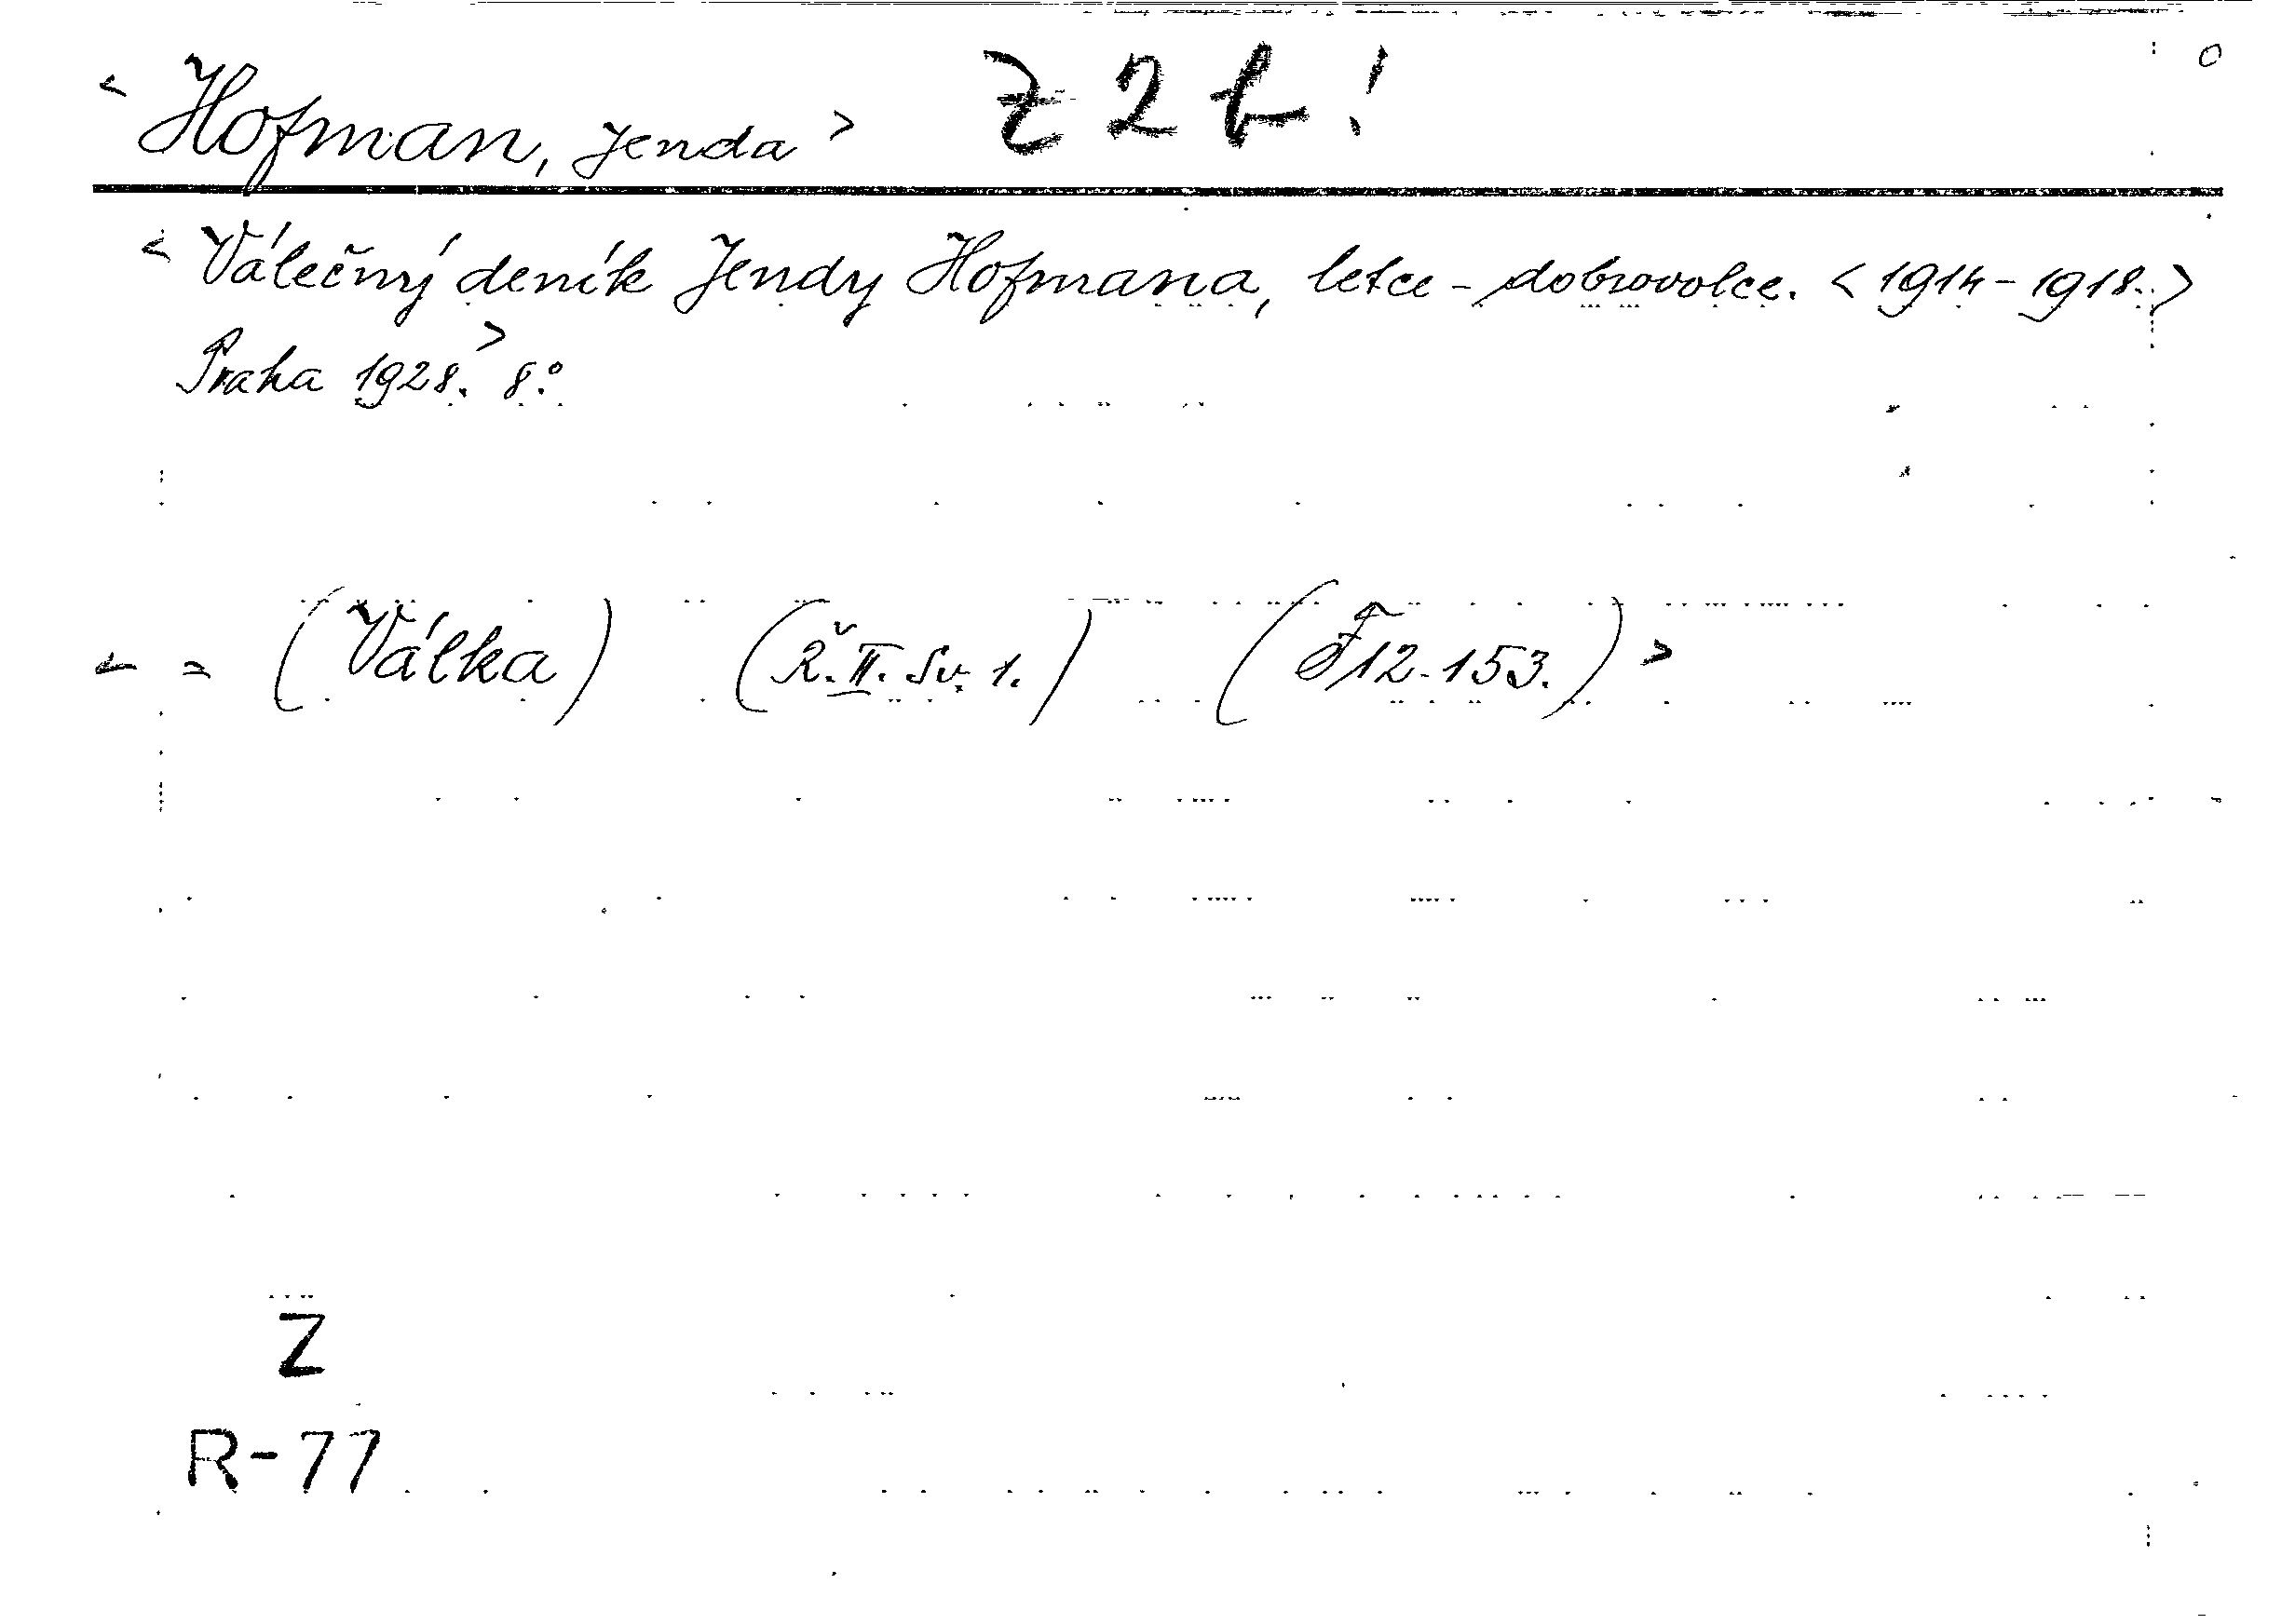 < Hofman, Jenda > Z 2 b !
< Válečný deník Jendy Hofmana, letce - dobrovolce. < 1914 - 1918. >
Praha 1928. > 8.°
< = (Válka) (Ř. II. Sv. 1.) (F 12 - 153.) >
Z
R-77